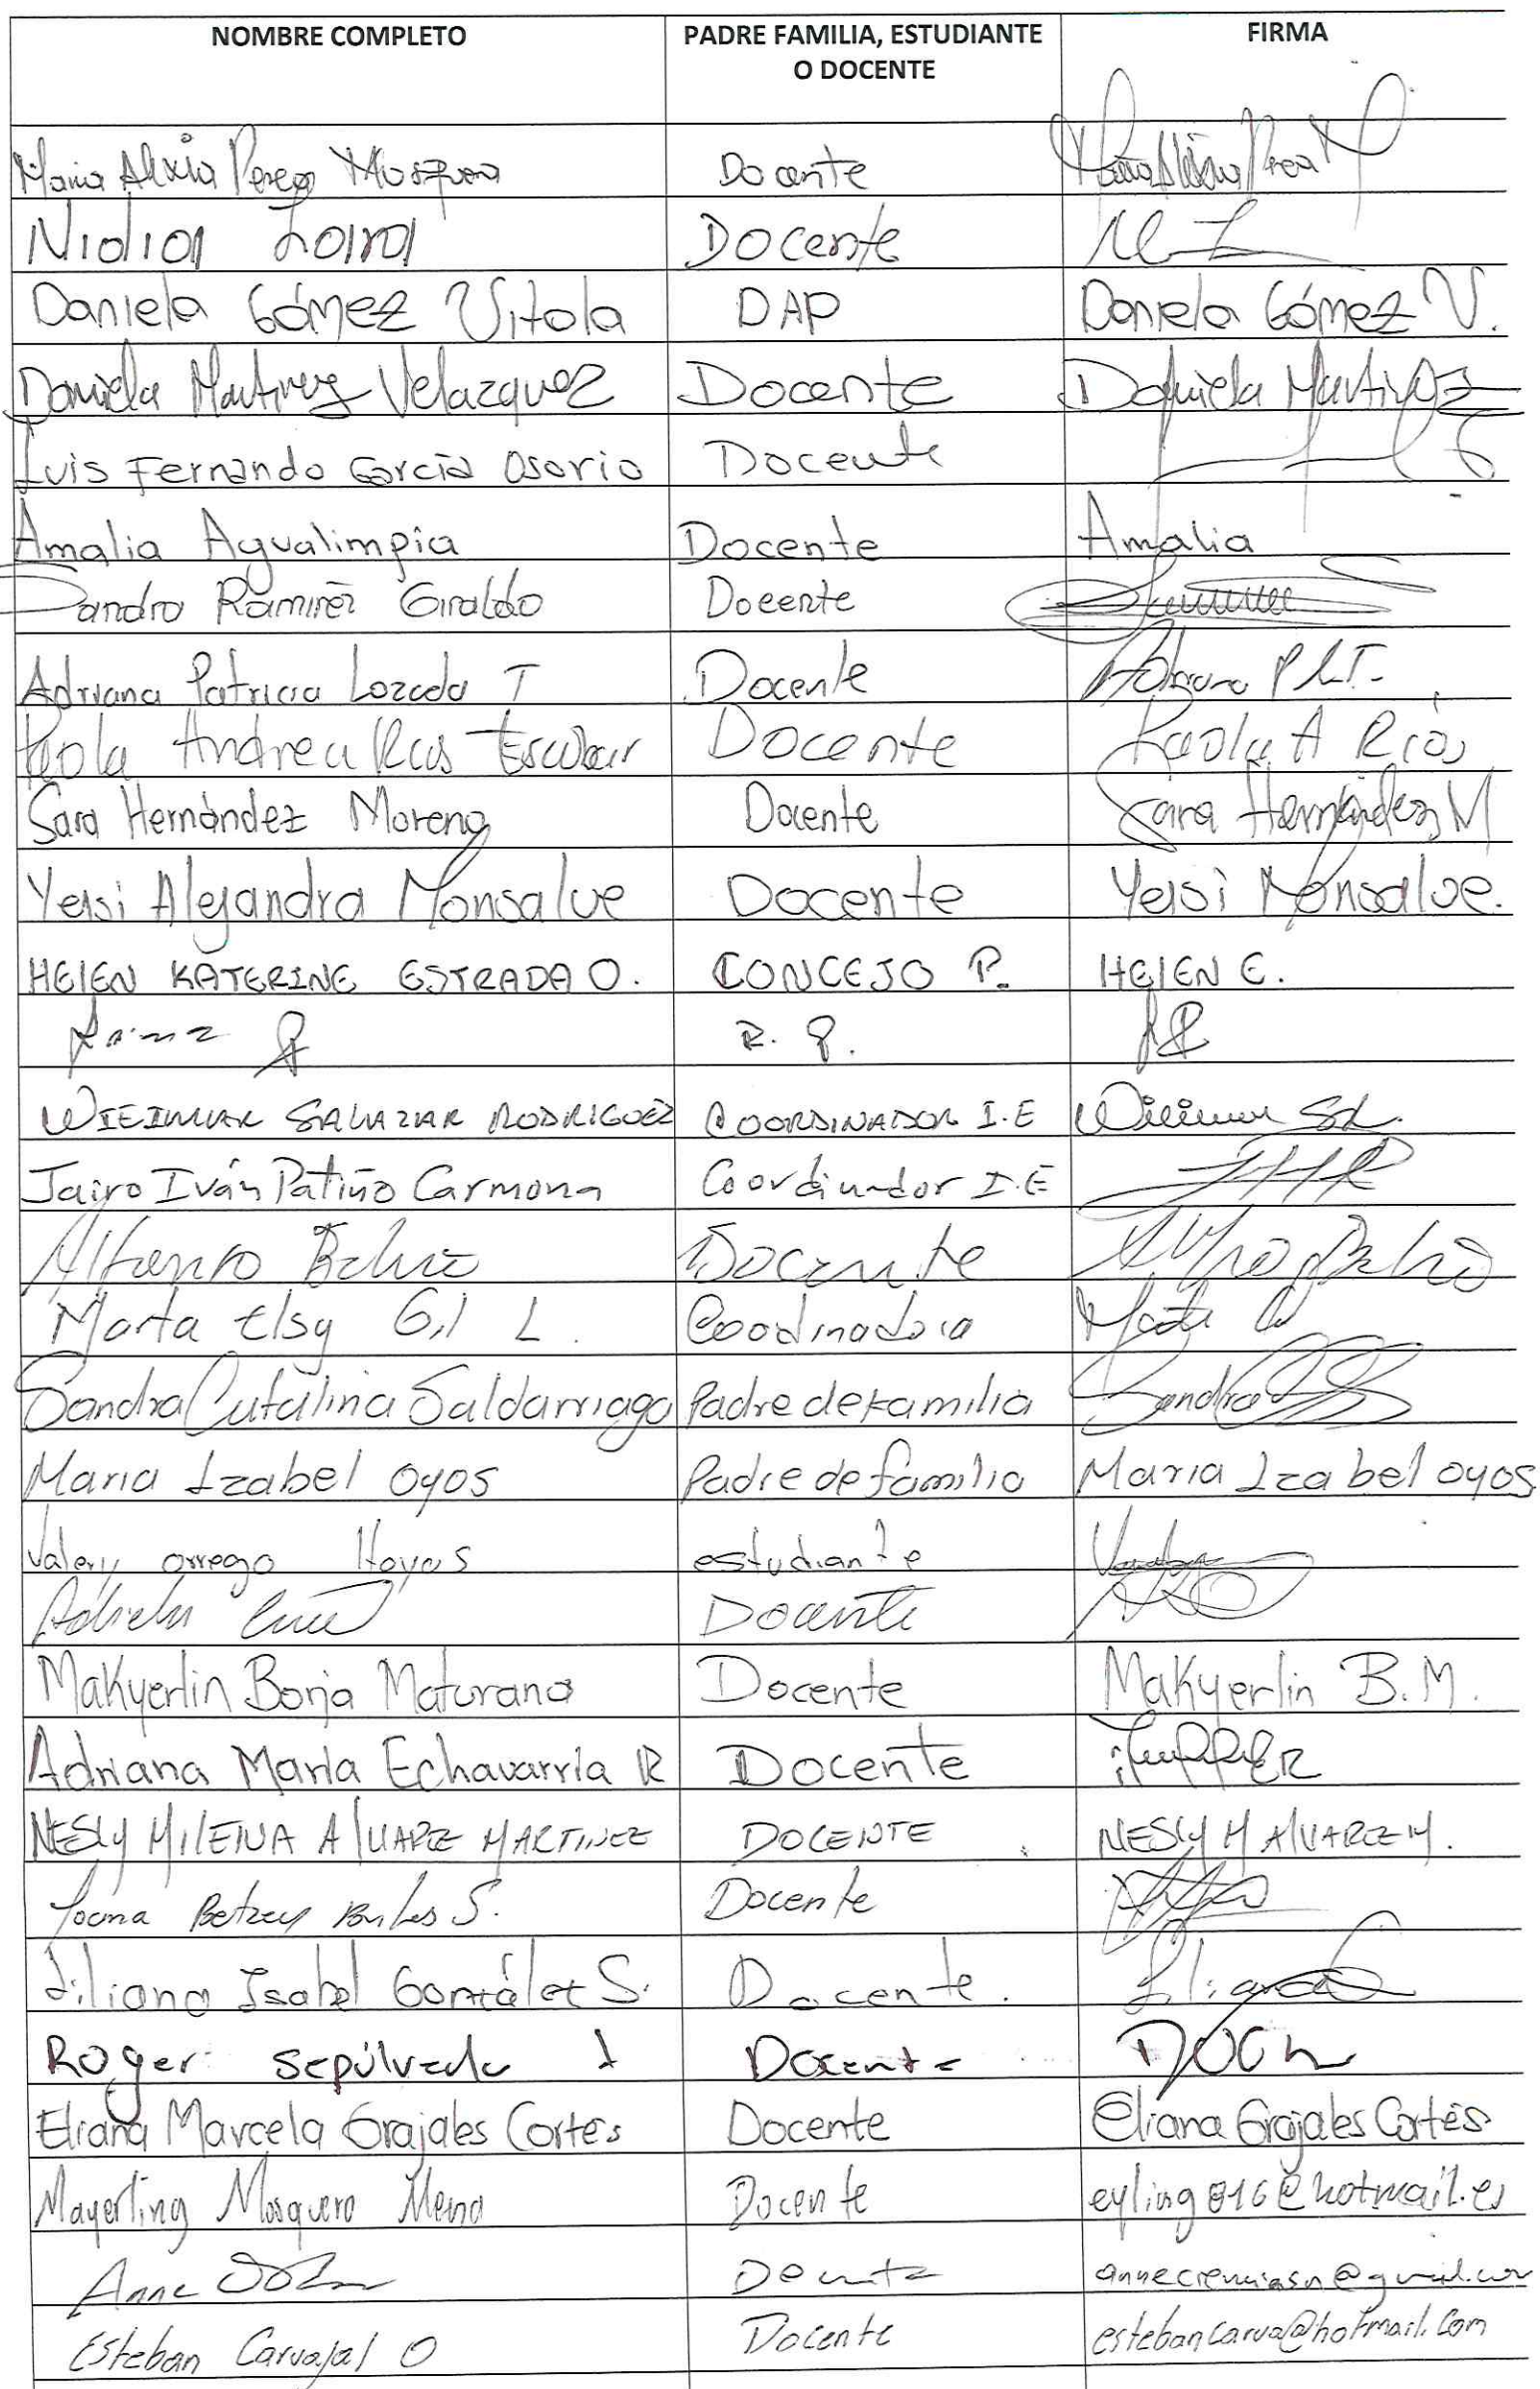 NOMBRE COMPLETO PADRE FAMILIA, ESTUDIANTE O DOCENTE FIRMA
Maria Mosquera Docente
Nidia Docente
Daniela Gómez Vitola DAP Daniela Gómez V.
Daniela Martinez Velazquez Docente Daniela Martinez
Luis Fernando Garcia Osorio Docente
Amalia Agualimpia Docente Amalia
Sandra Ramirez Giraldo Docente
Adriana Patricia Lozada T Docente P.L.T.
Paola Andrea Rios Escobar Docente Paola A Rios
Sara Hernández Moreno Docente Sara Hernández M
Yeisi Alejandra Monsalve Docente Yeisi Monsalve.
HELEN KATERINE ESTRADA O. CONCEJO P. HELEN E.
R. P.
WIEIMAR SALAZAR RODRIGUEZ COORDINADOR I.E
Jairo Iván Patiño Carmona Coordinador I.E
Docente
Marta Elsy Gil L. Coodinadora
Sandra Catalina Saldarriaga Padre de familia Sandra
Maria Izabel Oyos Padre de familia Maria Izabel oyos
Valery orrego Hoyos estudiante
Docente
Makyerlin Borja Maturana Docente Makyerlin B.M.
Adriana María Echavarría R Docente
NESLY MILENA ALVAREZ MARTINEZ DOCENTE NESLY M ALVAREZ M.
Docente
Liliana Isabel González S. Docente.
Roger Sepúlveda Docente
Eliana Marcela Grajales Cortés Docente Eliana Grajales Cortés
Mayerling Mosquera Mena Docente eyling816@hotmail.es
Anne
Esteban Carvajal O Docente estebancarva@hotmail.com